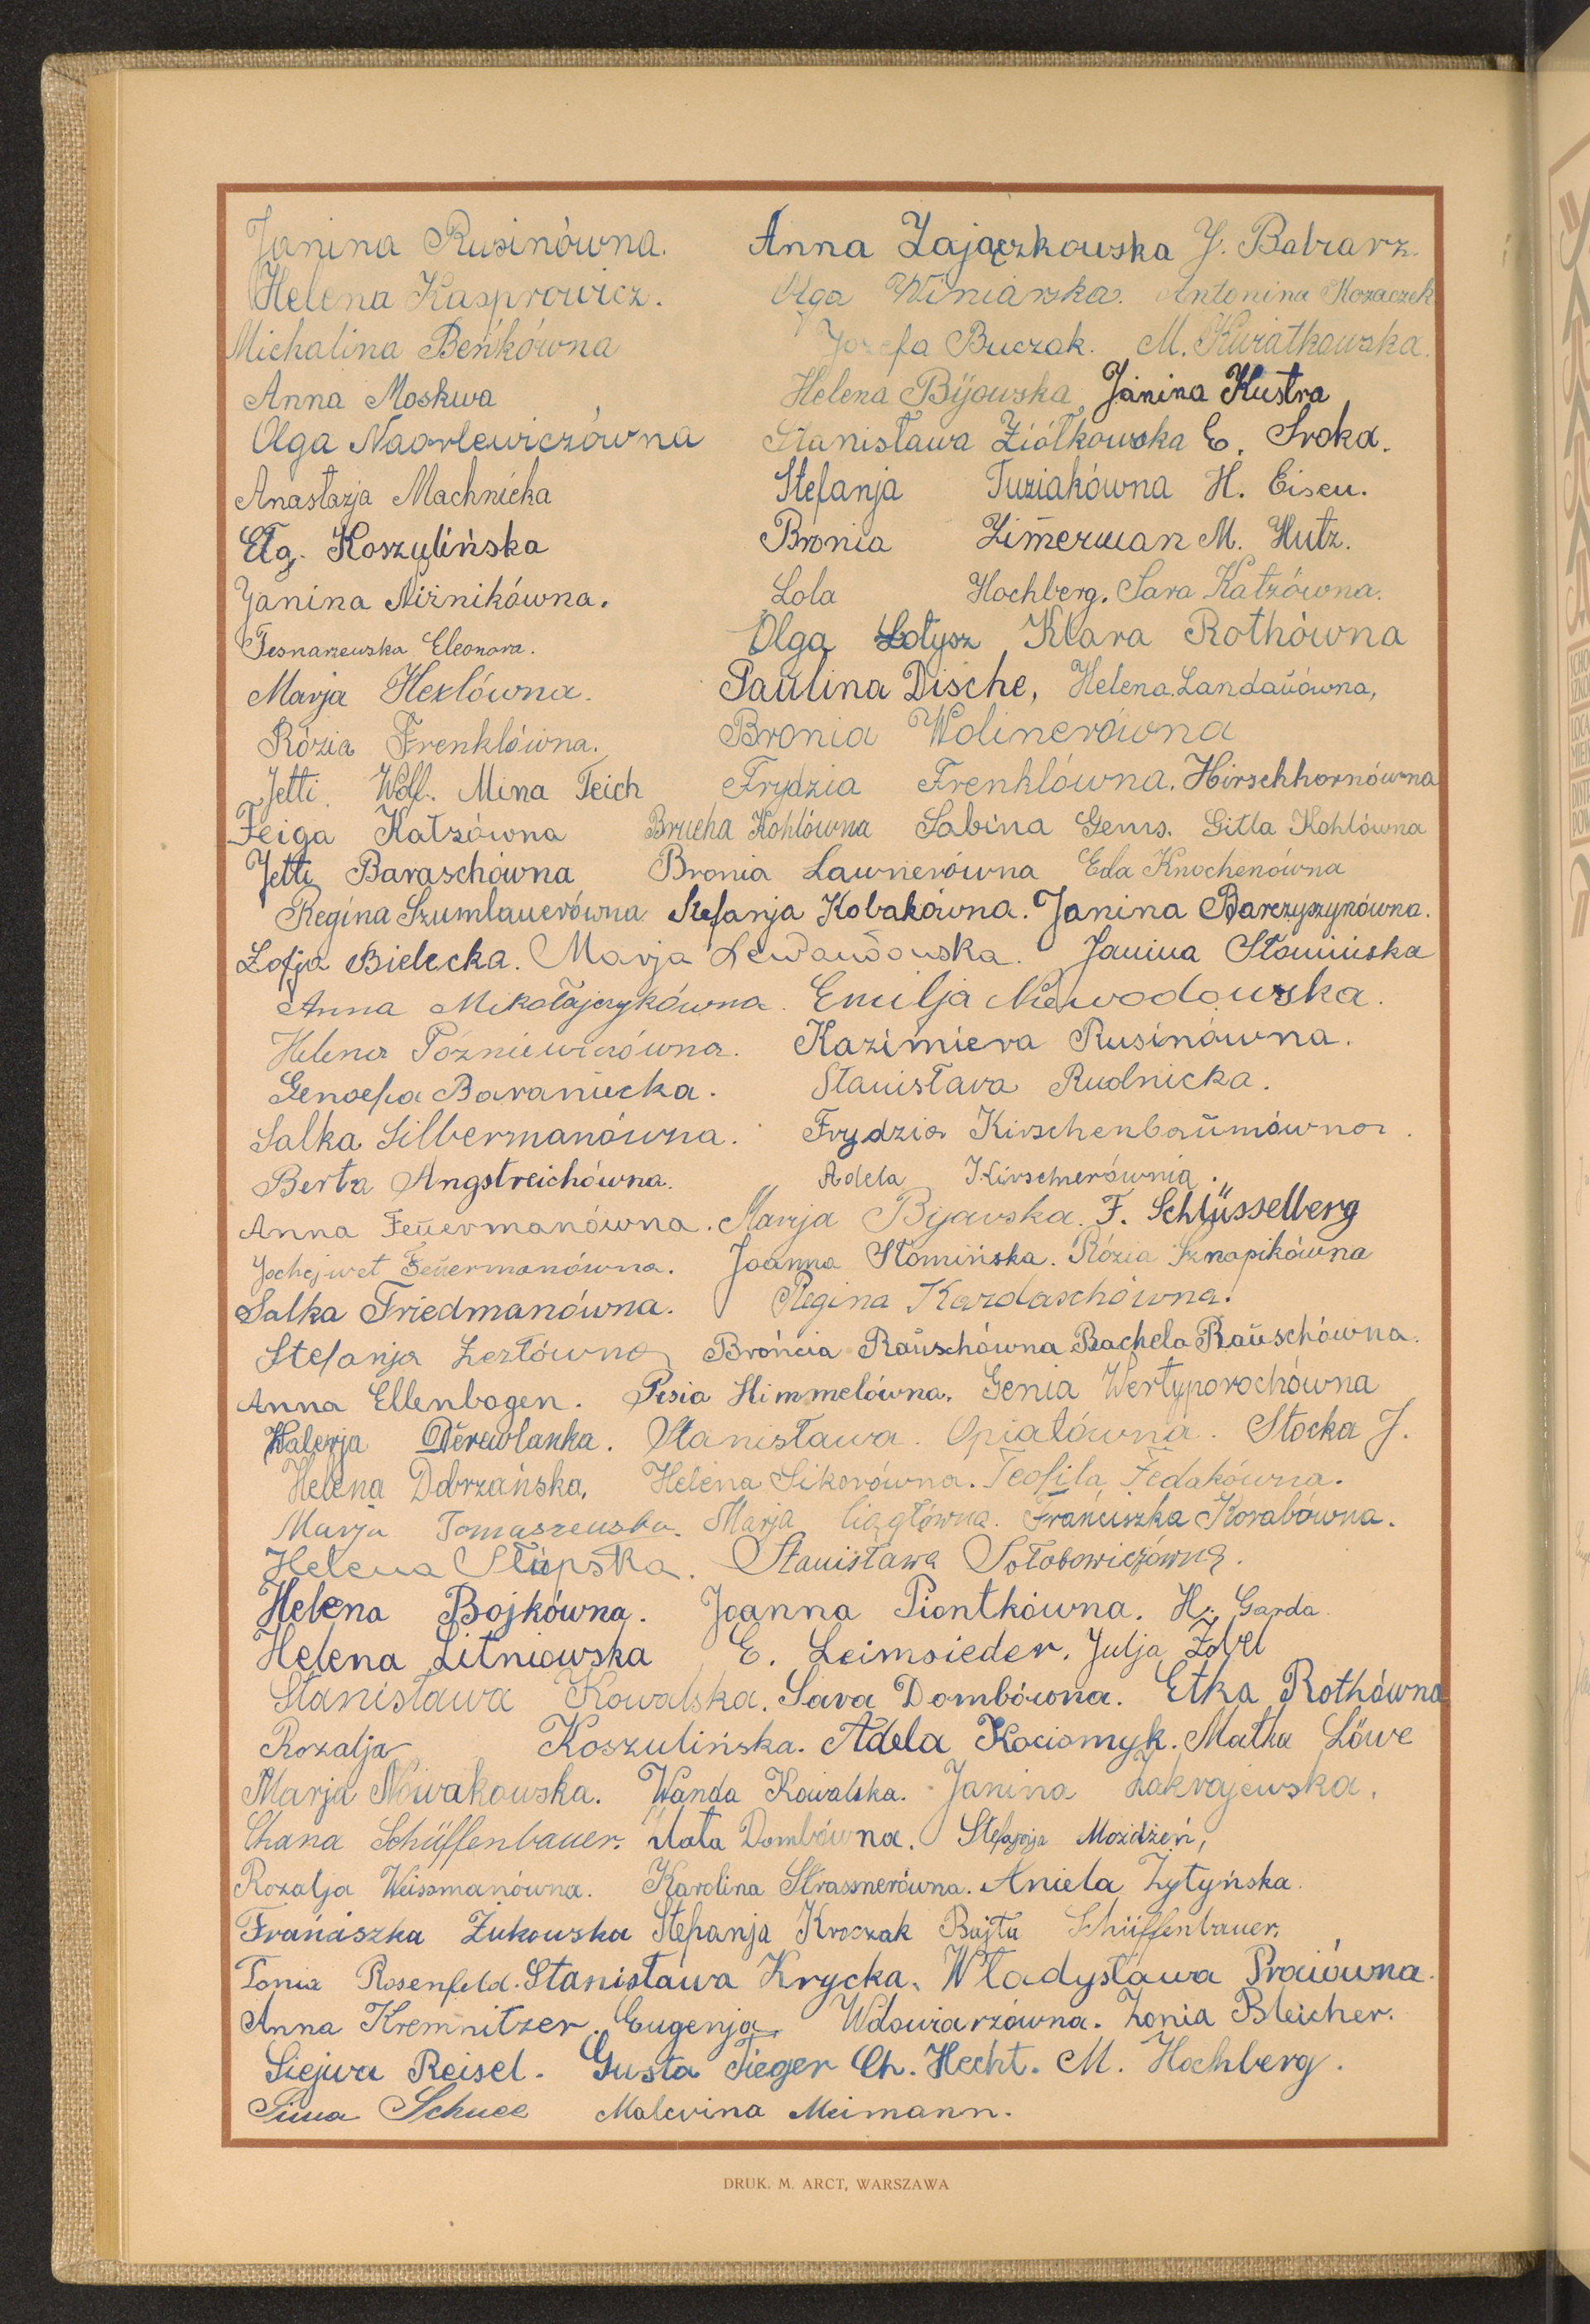 Janina Rusinówna. Anna Zajączkowska J. Babiarz.
Helena Kasprowicz. Olga Winiarska. Antonina Kozaczek
Michalina Beńkówna Józefa Buczak. M. Kwiatkowska.
Anna Moskwa Helena Bijowska Janina Kustra
Olga Naorlewiczówna Stanisława Ziółkowska E. Sroka.
Anastazja Machnicka Stefanja Tuziakówna H. Eisen.
Eug. Koszulińska Bronia Zimerman M. Hutz.
Janina Niżnikówna. Lola Hochberg. Sara Katzówna.
Tesnarzewska Eleonora. Olga Łotysz Klara Rothówna
Marja Hexlówna. Paulina Dische, Helena Landauówna,
Rózia Frenklówna. Bronia Wolinerówna
Jetti Wolf. Mina Teich Frydzia Frenklówna. Hirschhornówna
Feiga Katzówna Brucha Kohlówna Sabina Gems. Gitla Kohlówna
Jetti Baraschówna Bronia Lawnerówna Eda Knochenówna
Regina Szumlauerówna Stefanja Kobakówna. Janina Barczyszynówna.
Zofja Bielecka. Marja Lewandowska. Janina Słomińska
Anna Mikołajczykówna. Emilja Niewodowska.
Helena Póżniewiczówna. Kazimiera Rusinówna.
Genoefa Baraniecka. Stanisława Rudnicka.
Salka Silbermanówna. Frydzia Kirschenbaumówna.
Berta Angstreichówna. Adela Kirschnerówna.
Anna Feuermanówna. Marja Bijavska. F. Schlüsselberg
Jochejwet Feuermanówna. Joanna Słomińska. Rózia Sznapikówna
Salka Friedmanówna. Regina Kardaschówna.
Stefanja Zezłówna Brońcia Rauschówna Rachela Rauschówna.
Anna Ellenbogen. Pesia Himmelówna. Genia Wertyporochówna
Walerja Derewlanka. Stanisława Opiałówna. Stocka J.
Helena Dobrzańska, Helena Sikorówna. Teofila Fedakówna.
Marja Tomaszewska. Marja Ciągłówna. Franciszka Korabówna.
Helena Słupska. Stanisława Sołobowiczówna.
Helena Bojkówna. Joanna Piontkówna. H. Garda
Helena Litniowska E. Leimsieder. Julja Zobel
Stanisława Kowalska. Sara Dombówna. Etka Rothówna
Rozalja Koszulińska. Adela Kociomyk. Matka Löwe
Marja Nowakowska. Wanda Kowalska. Janina Zakrajewska.
Chana Schüffenbauer. Mata Dombówna. Stefanja Możdżeń,
Rozalja Weissmanówna. Karolina Strassnerówna. Aniela Żytyńska.
Franciszka Żukowska Stefanja Kroczak Bajta Schüffenbauer.
Tonia Rosenfeld. Stanisława Krycka. Władysława Prociówna.
Anna Kremnitzer. Eugenja Wdowiarzówna. Zonia Bleicher.
Siejwa Reisel. Gusta Tieger Ch. Hecht. M. Hochberg.
Schnee Malwina Meimann.
DRUK. M. ARCT, WARSZAWA